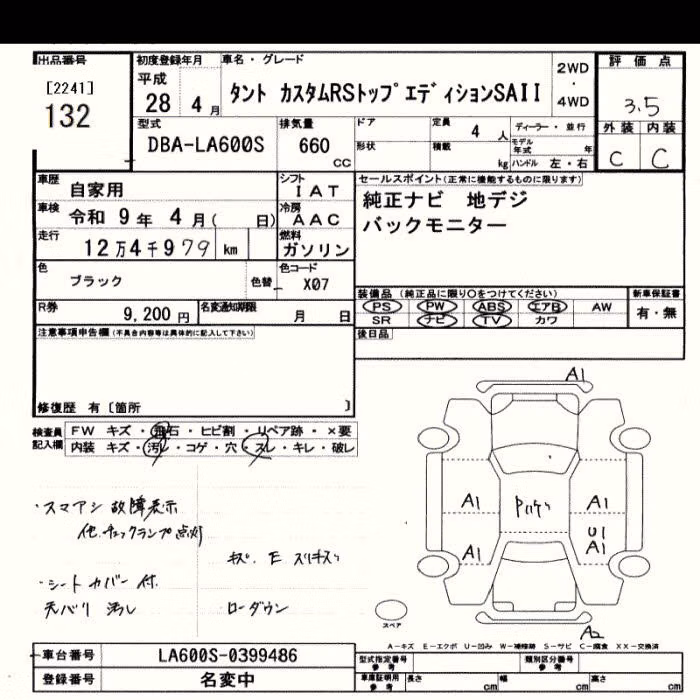 出品番号
[2241]
132
初度登録年月
平成
28 4 月
車名・グレード
タント カスタムRSトップエディションSAII
2WD
・
4WD
評価点
3.5
外装 内装
C C
型式
DBA-LA600S
排気量
660
CC
ドア
形状
定員
4 人
積載
kg
ディーラー・並行
モデル年式 年
ハンドル 左・右
車歴
自家用
シフト
IAT
車検
令和 9 年 4 月( 日)
冷房
AAC
走行
12万4千979 km
燃料
ガソリン
色
ブラック
色替
色コード
X07
R券
9,200 円
名変通知期限
月 日
セールスポイント(正常に機能するものに限ります)
純正ナビ 地デジ
バックモニター
装備品 (純正品に限り○をつけてください)
PS PW ABS エアB AW
SR ナビ TV カワ
新車保証書
有・無
後日品
注意事項申告欄(不具合内容等は具体的に記入して下さい)
修復歴 有〔箇所 〕
検査員記入欄
FW キズ・飛石・ヒビ割・リペア跡・×要
内装 キズ・汚れ・コゲ・穴・スレ・キレ・破レ
・スマアシ 故障表示
他.チェックランプ点灯
・シートカバー付.
天バリ 汚レ
ローダウン
A1
A1
A1
A1
A1
U1
A1
A2
スペア
A-キズ E-エクボ U-凹み W-補修跡 S-サビ C-腐食 XX-交換済
車台番号
LA600S-0399486
登録番号
名変中
型式指定番号
参考
類別区分番号
参考
車庫証明用
参考
長さ cm
幅 cm
高さ cm